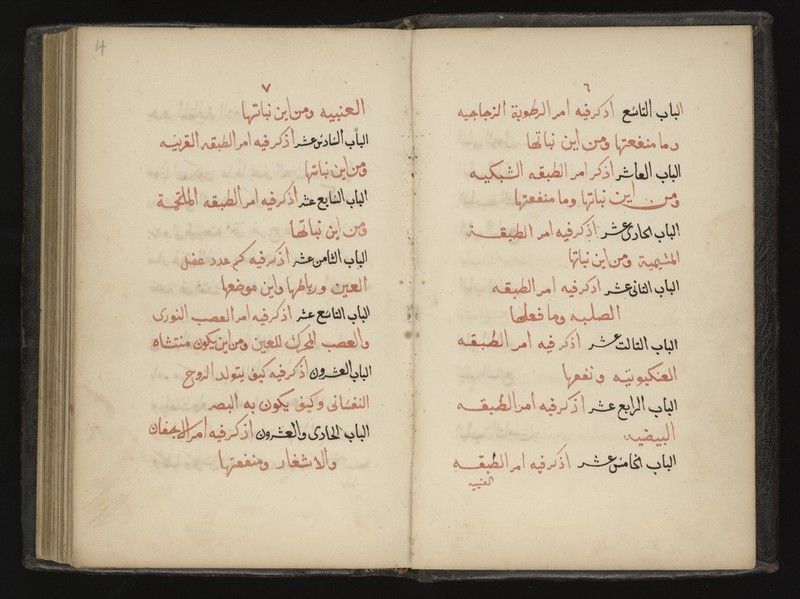 ٦
الباب التاسع اذكر فيه امر الرطوبة الزجاجيه
وما منفعتها ومن اين نباتها
الباب العاشر اذكر امر الطبقه الشبكيه
ومن اين نباتها وما منفعتها
الباب الحادى عشر اذكر فيه امر الطبقة
المشيمية ومن اين نباتها
الباب الثانى عشر اذكر فيه امر الطبقه
الصلبه وما فعلها
الباب الثالث عشر اذكر فيه امر الطبقه
العنكبوتيه ونفعها
الباب الرابع عشر اذكر فيه امر الطبقه
البيضيه
الباب الخامس عشر اذكر فيه امر الطبقه
العنبيه
14
٧
العنبيه ومن اين نباتها
الباب السادس عشر اذكر فيه امر الطبقه القرنيه
ومن اين نباتها
الباب السابع عشر اذكر فيه امر الطبقه الملتحمة
ومن اين نباتها
الباب الثامن عشر اذكر فيه كم عدد عضل
العين ورباطها واين موضعها
الباب التاسع عشر اذكر فيه امر العصب النورى
والعصب المحرك للعين ومن اين يكون منتشاه
الباب العشرون اذكر فيه كيف يتولد الروح
النفسانى وكيف يكون به البصر
الباب الحادى والعشرون اذكر فيه امر الاجفان
والاشفار ومنفعتها